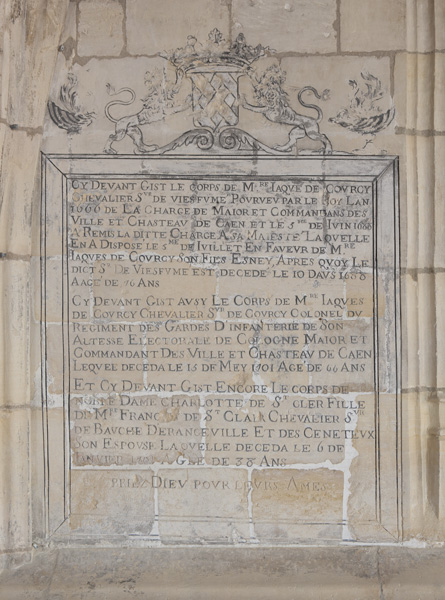 CY DEVANT GIST LE CORPS DE M.RE IAQUE DE COVRCY
CHEVALIER S.VR DE VIESFVME POVRVEV PAR LE ROY LAN
1666 DE LA CHARGE DE MAIOR ET COMMANDANS DES
VILLE ET CHASTEAV DE CAEN ET LE 5.ME DE IUIN 1686
A REMIS LA DITTE CHARGE A SA MAIESTÉ LAQVELLE
EN A DISPOSE LE 5.ME DE IVILLET EN FAVEVR DE M.RE
IAQUES DE COVRCY SON FILS ESNEY, APRES QVOY LE
DICT S.R DE VIESFVME EST DECEDE LE 10 DAVS 1688
AAGE DE 76 ANS
CY DEVANT GIST AVSY LE CORPS DE M.RE IAQVES
DE COVRCY CHEVALIER S.VR DE COVRCY COLONEL DV
REGIMENT DES GARDES D'INFANTERIE DE SON
ALTESSE ELECTORALE DE COLOGNE MAIOR ET
COMMANDANT DES VILLE ET CHASTEAV DE CAEN
LEQVEL DECEDA LE 15 DE MEY 1701 AGÉ DE 66 ANS
ET CY DEVANT GIST ENCORE LE CORPS DE
NOBLE DAME CHARLOTTE DE S.T CLER FILLE
DE M.RE FRANCOIS DE S.T CLAIR CHEVALIER S.VR
DE BAVCHE DERANGEVILLE ET DES CENETEVX
SON ESPOVSE LAQVELLE DECEDA LE 6 DE
IANVIER AGEE DE 38 ANS
PRIEZ DIEV POVR LEVRS AMES